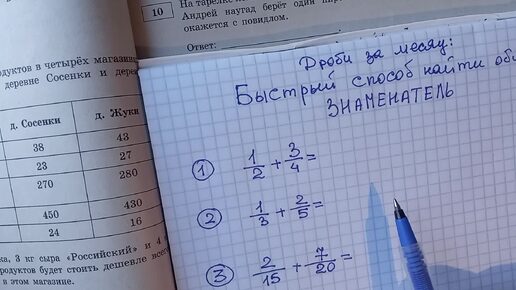 10
На тарелке
Андрей наугад берёт один
окажется с повидлом.
Ответ:
продуктов в четырёх магазинах
деревне Сосенки и
д. Сосенки д. Жуки
38 43
23 27
270 280
450 430
24 16
3 кг сыра «Российский» и 4
продуктов будет стоить дешевле всего
в этом магазине.
Дроби за месяц:
Быстрый способ найти
ЗНАМЕНАТЕЛЬ
1 1/2 + 3/4 =
2 1/3 + 2/5 =
3 2/15 + 7/20 =